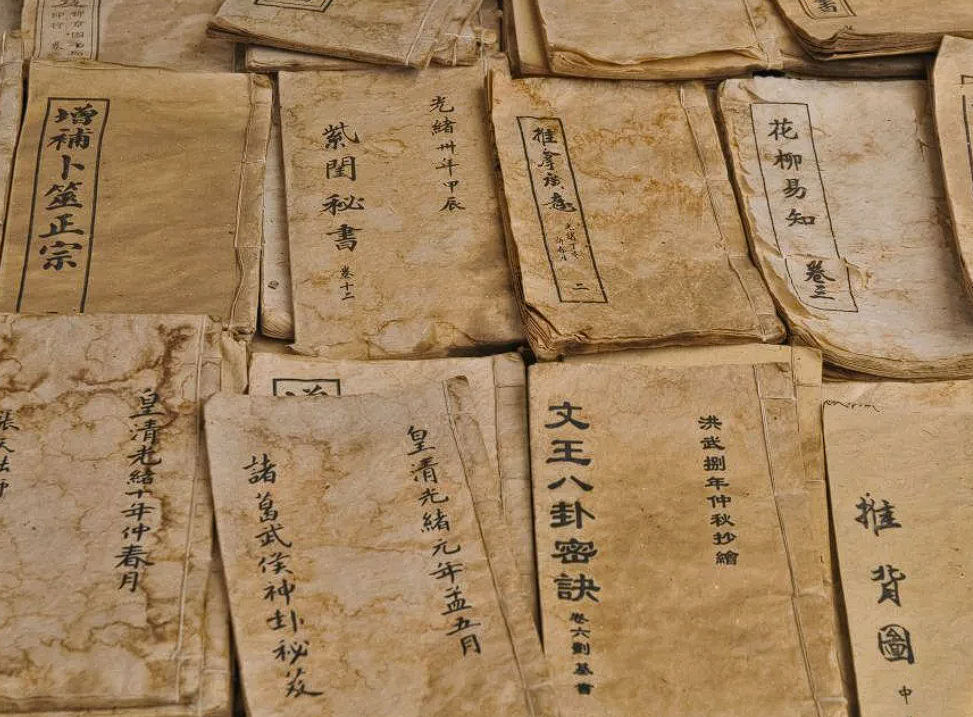 增補卜筮正宗
光緒卅年甲辰
紫閏秘書
卷十二
二
花柳易知
卷三
皇清光緒十年仲春月
皇清光緒元年孟五月
諸葛武侯神卦秘笈
洪武捌年仲秋抄繪
文王八卦密訣
卷六劉基書
推背圖
中